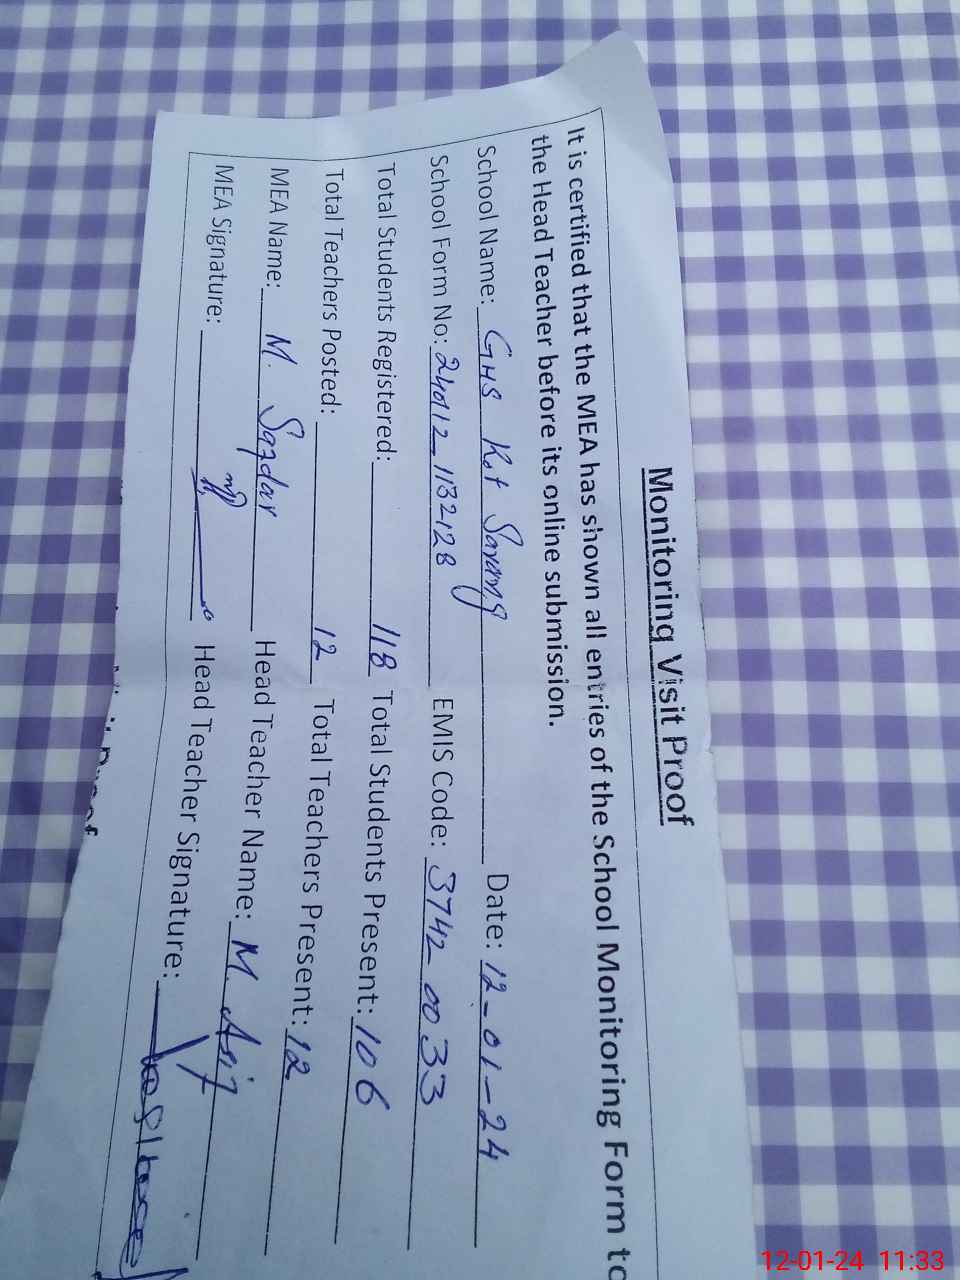 Monitoring Visit Proof
It is certified that the MEA has shown all entries of the School Monitoring Form to
the Head Teacher before its online submission.
School Name: GHS Kot Sarang Date: 12-01-24
School Form No: 240112_1132128 EMIS Code: 3742_0033
Total Students Registered: 118 Total Students Present: 106
Total Teachers Posted: 12 Total Teachers Present: 12
MEA Name: M. Safdar Head Teacher Name: M. Asif
MEA Signature: Head Teacher Signature:
12-01-24 11:33